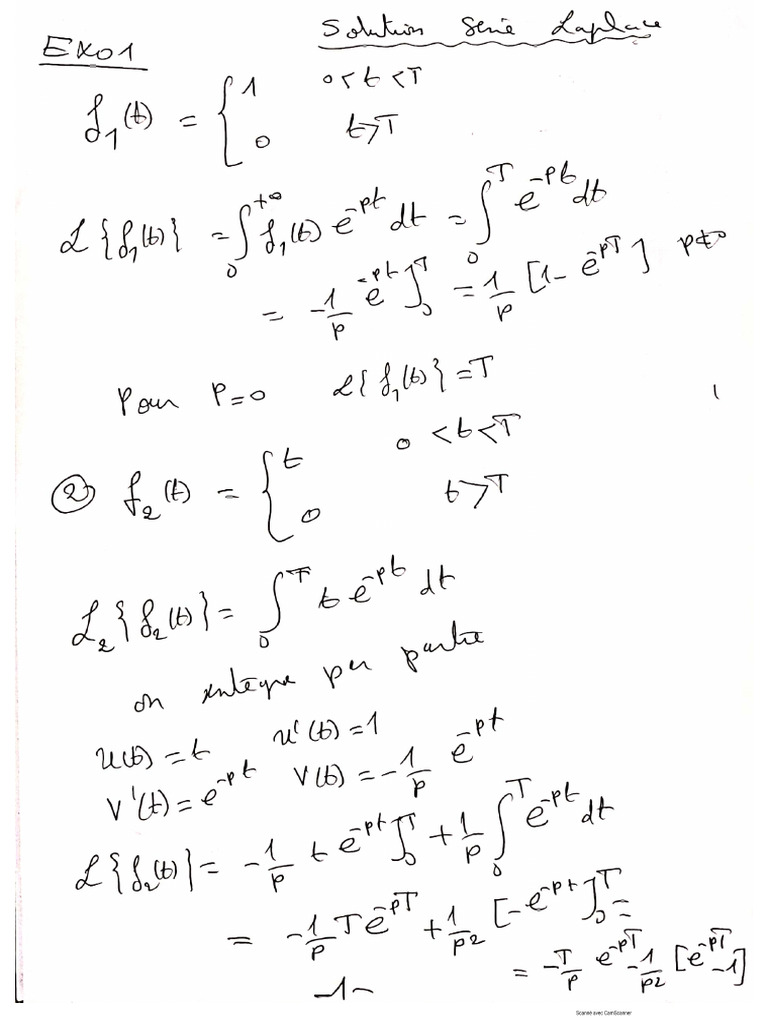 Solution Serie Laplace
EXO1
f₁(t) = { 1 0<t<T
0 t>T
L{f₁(t)} = ∫₀^{+∞} f₁(t) e^{-pt} dt = ∫₀^T e^{-pt} dt
= -1/p e^{-pt}]₀^T = 1/p [1 - e^{-pT}] p≠0
Pour P=0 L{f₁(t)} = T
② f₂(t) = { t 0<t<T
0 t>T
L₂{f₂(t)} = ∫₀^T t e^{-pt} dt
on intègre par partie
u(t) = t u'(t) = 1
v'(t) = e^{-pt} v(t) = -1/p e^{-pt}
L{f₂(t)} = -1/p t e^{-pt}]₀^T + 1/p ∫₀^T e^{-pt} dt
= -1/p T e^{-pT} + 1/p² [-e^{-pt}]₀^T =
= -T/p e^{-pT} - 1/p² [e^{-pT} - 1]
Scanné avec CamScanner